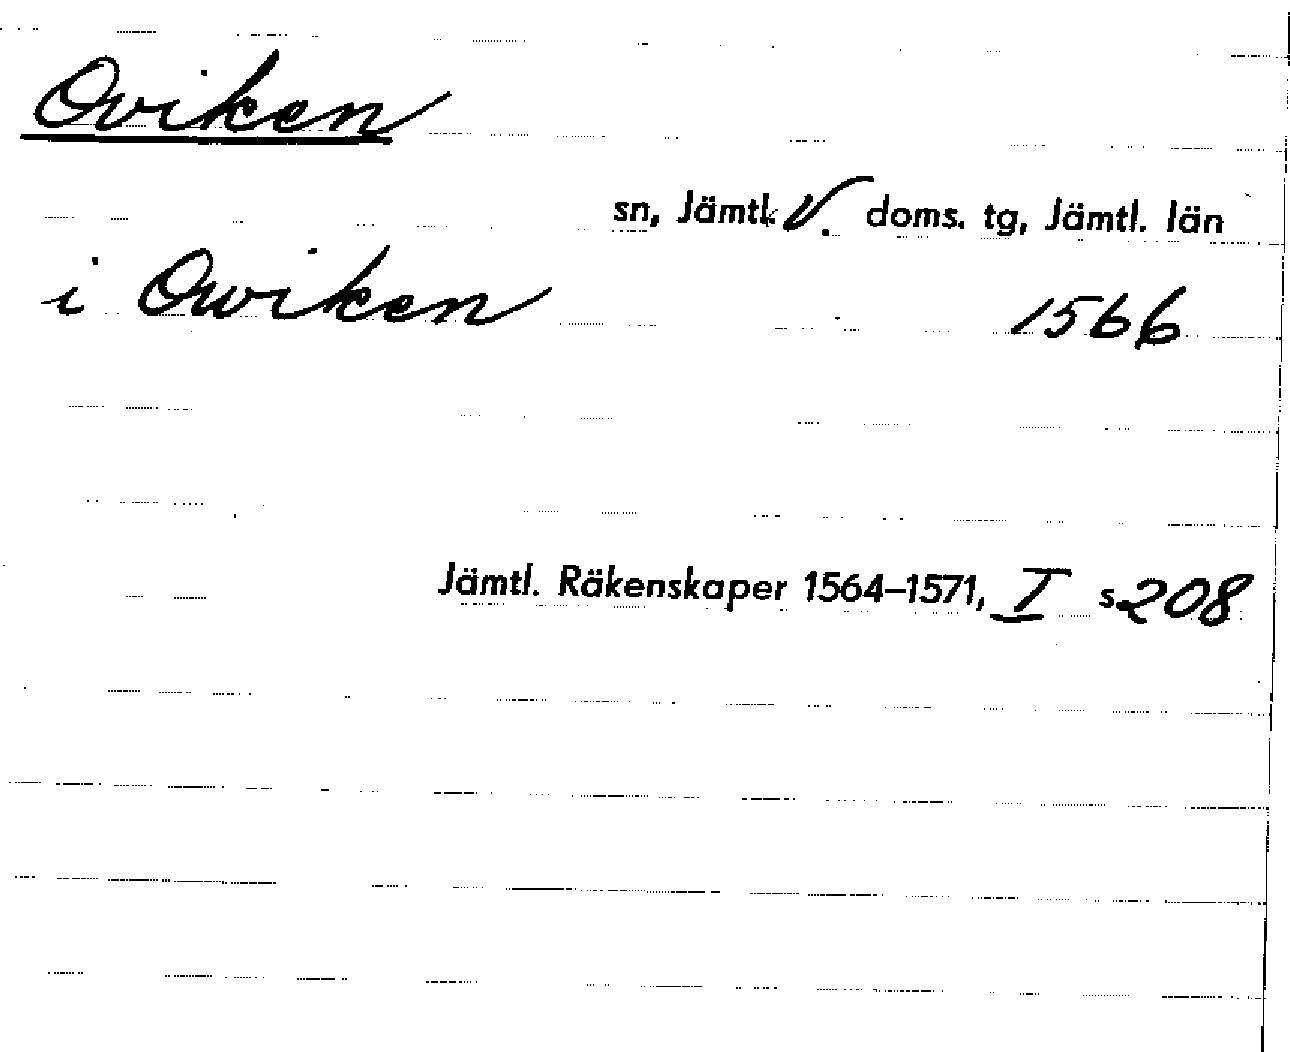 Oviken
sn, Jämtl. V. doms. tg, Jämtl. län
i Owiken 1566
Jämtl. Räkenskaper 1564–1571, I s. 208